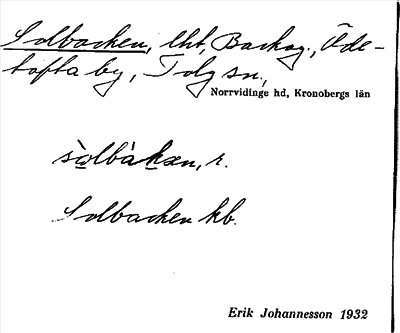 Solbacken, lht, Backag., Öde-
tofta by, Tolg sn.,
Norrvidinge hd, Kronobergs län
sò̱lbàḵən, r.
Solbacken kb.
Erik Johannesson 1932